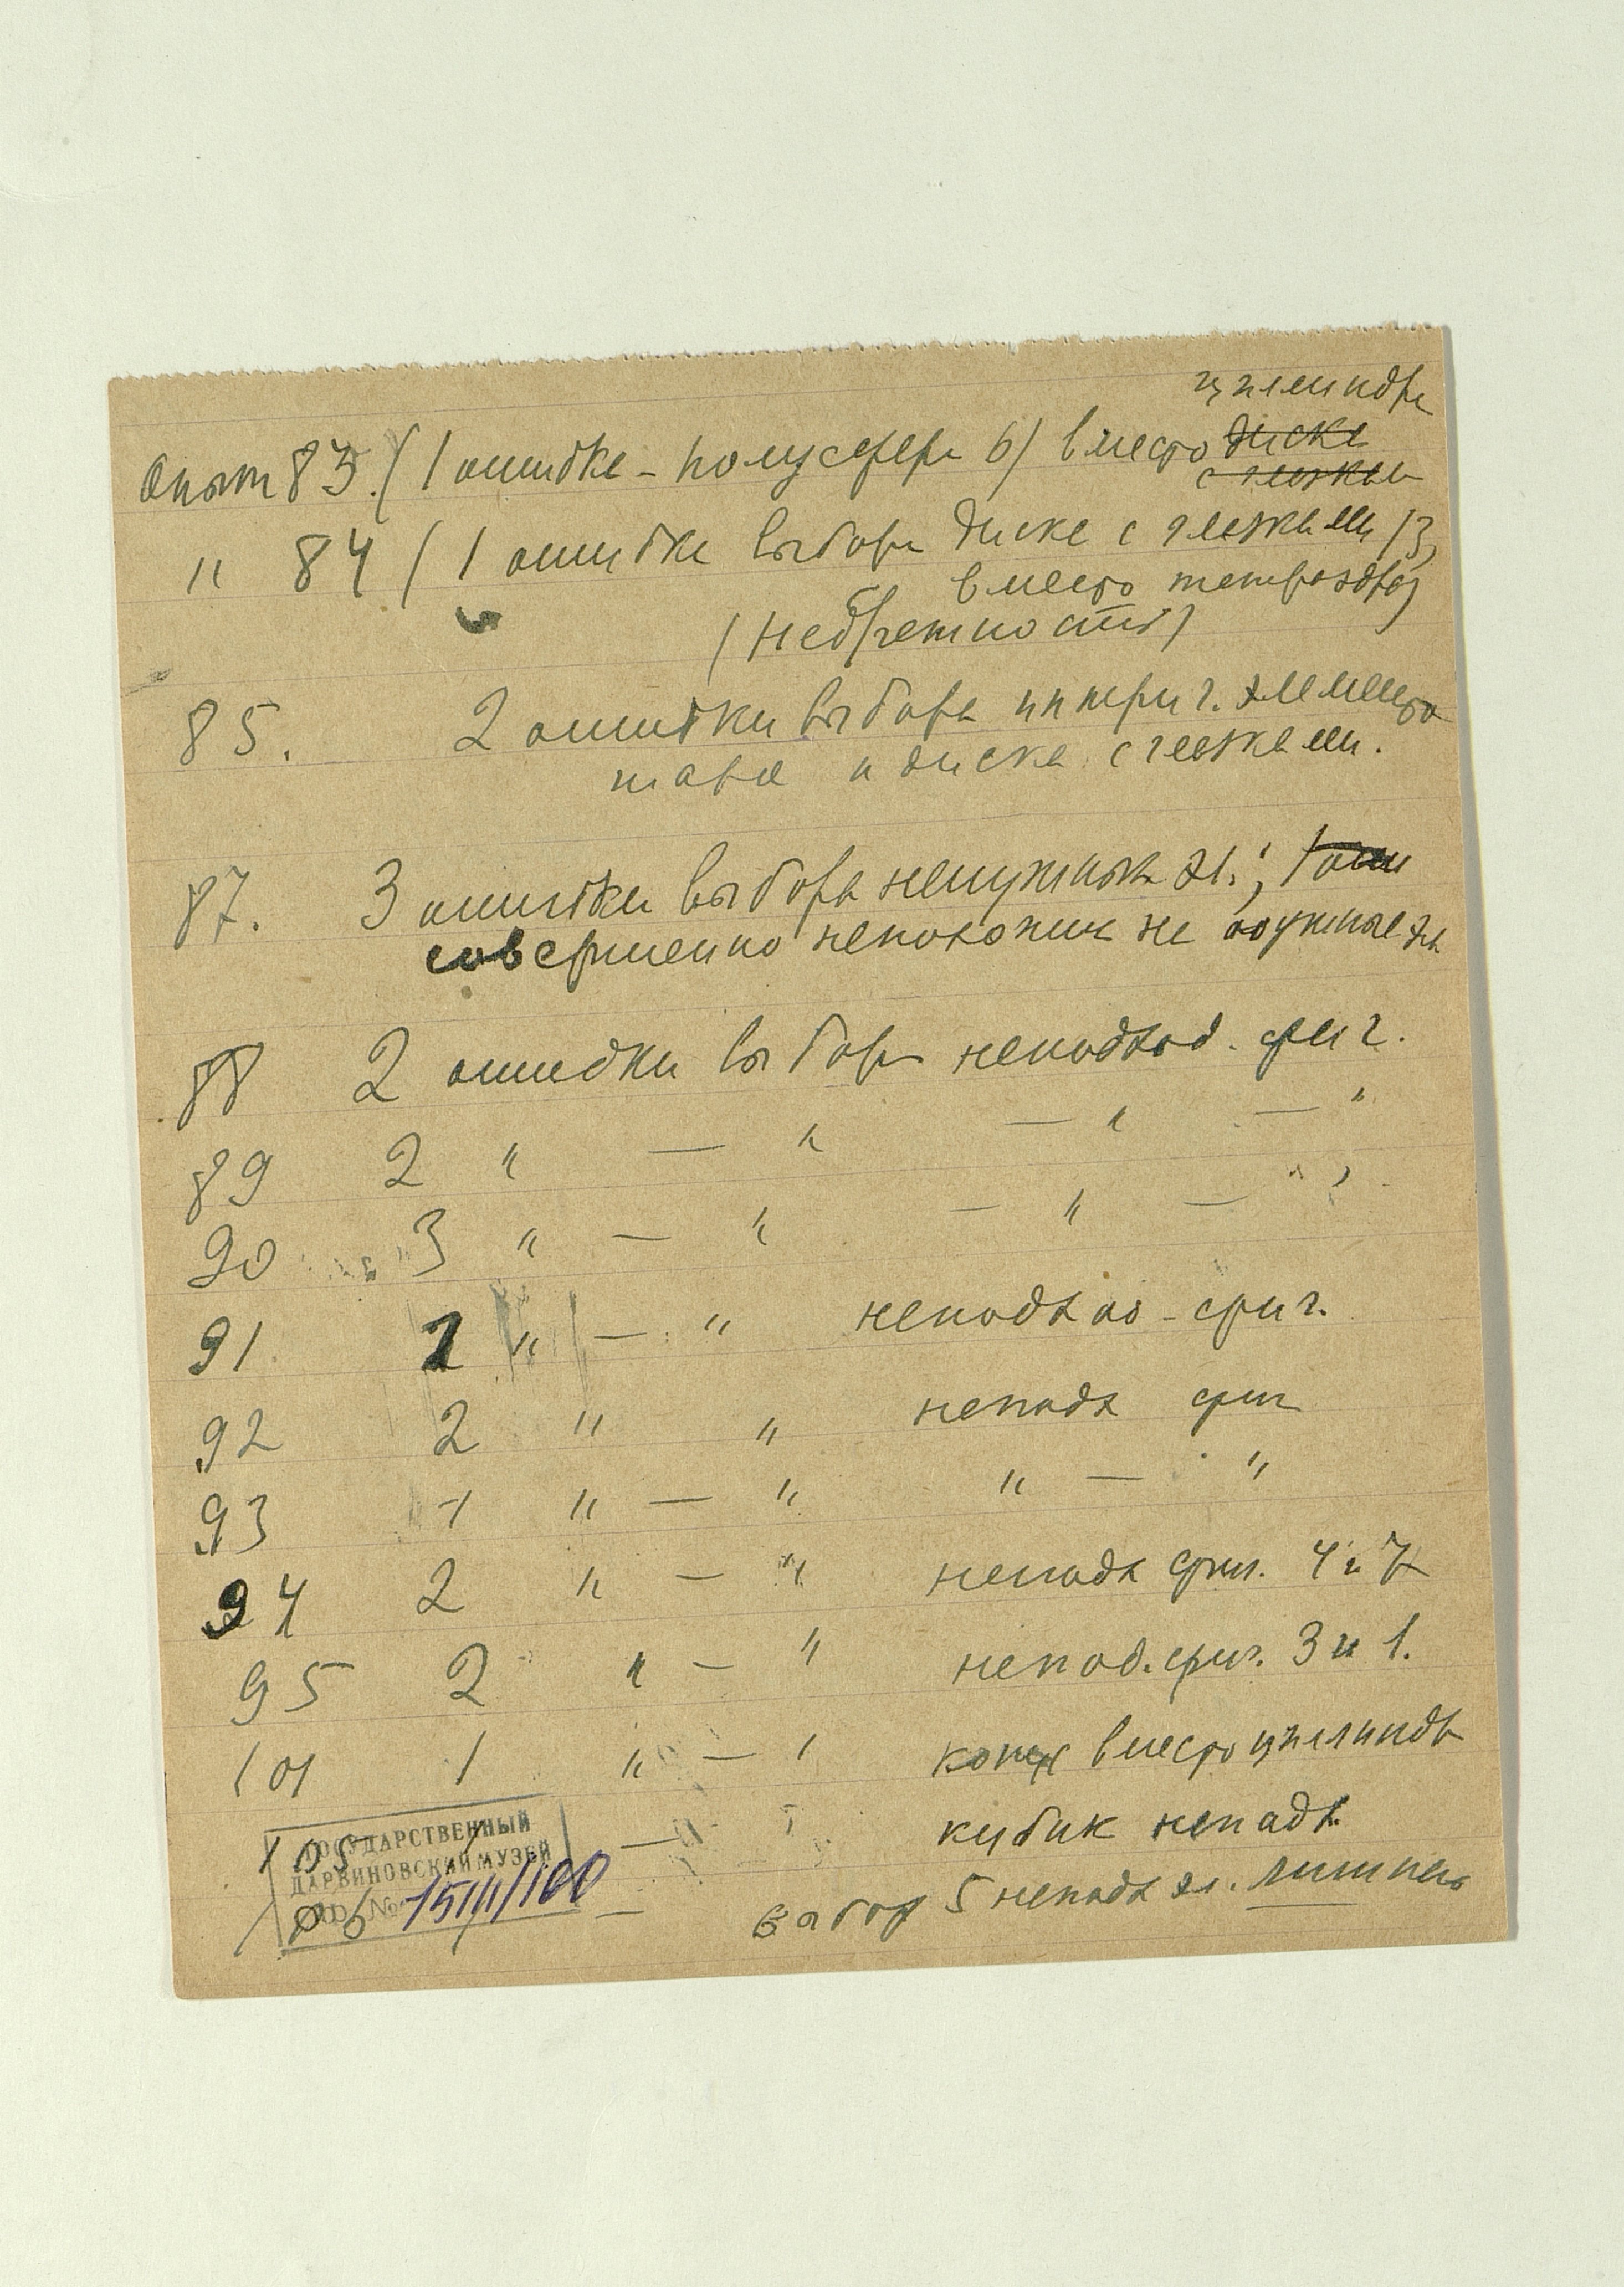 цилиндра
Опыт 83. (1 ошибка – полусфера 6) вместо диска
с гежами
" 84 (1 ошибка выбора диска с гежами (3,
вместо тетраэдра)
(небрежность)
85. 2 ошибки выбора цилиндр. вместо
и диска с гежами.
87. 3 ошибки выбора ненужных эл.; 1 ош
совершенно непохожих на нужные эл.
88 2 ошибки выбора неподход. фиг.
89 2 " — " — " — "
90 3 " — " — " — "
91 2 " — " неподхо – фиг.
92 2 " " неподх фиг
93 1 " — " " — "
94 2 " — " неподх фиг. 4 и 7
95 2 " — " непод. фиг. 3 и 1.
101 1 " — " конус вместо цилиндр
105 1 — " кубик неподх.
106 1 — выбор 5 неподх эл. лишнего
ГОСУДАРСТВЕННЫЙ
ДАРВИНОВСКИЙ МУЗЕЙ
№ 1511/100